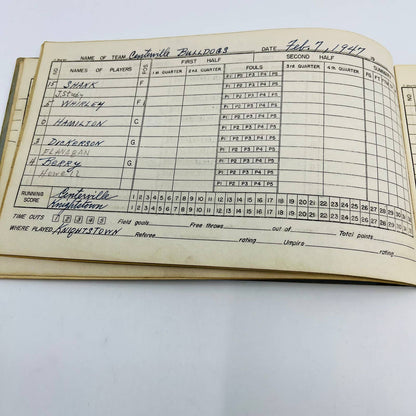 NAME OF TEAM Centerville BULLDOGS DATE Feb. 7, 1947
FIRST HALF SECOND HALF
NO. NAMES OF PLAYERS POS. 1ST QUARTER 2ND QUARTER FOULS 3RD QUARTER 4TH QUARTER SUMMARY
FG FT
P1 P2 P3 P4 P5
15 SHANK F
P1 P2 P3 P4 P5
5 WHIRLEY F
P1 P2 P3 P4 P5
0 HAMILTON C
P1 P2 P3 P4 P5
3 DICKERSON G
FLANAGAN
P1 P2 P3 P4 P5
4 BERRY G
Howell
P1 P2 P3 P4 P5
RUNNING SCORE
Centerville 1 2 3 4 5 6 7 8 9 10 11 12 13 14 15 16 17 18 19 20 21 22 23 24 25 26 27 28 29 30 31 32 33 34 35 36 37 38
Knightstown 1 2 3 4 5 6 7 8 9 10 11 12 13 14 15 16 17 18 19 20 21 22 23 24 25 26 27 28 29 30 31 32 33 34 35 36 37 38
TIME OUTS 1 2 3 4 5 Field goals Free throws out of Total points
WHERE PLAYED KNIGHTSTOWN Referee rating Umpire rating